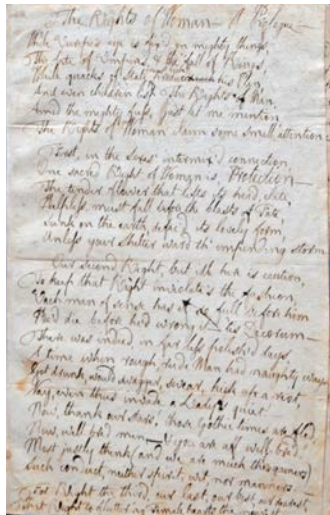 The Rights of Woman — A Prologue —
While Europe's eye is fix'd on mighty things,
The fate of Empires, & the fall of Kings,
While quacks of State his Plan,
And even children lisp The Rights of Man,
Amid the mighty fuss, just let me mention
The Rights of Woman claim some small attention
First, in the Sexes' intermix'd connection,
One sacred Right of Woman is, Protection —
The tender flower that lifts its head, elate,
Helpless, must fall before the blasts of Fate,
Sunk on the earth, defac'd its lovely form
Unless your Shelter ward th' impending storm
Our second Right, but is caution,
To keep that Right inviolate's the fashion,
Each man of sense has it so full before him
He'd die before he'd wrong it — 'tis Decorum —
There was indeed in far less polished days,
A time when rough, rude Man had naughty ways
Get drunk, would swagger, swear, kick up a riot,
Nay, even thus invade a Lady's quiet
Now, thank our stars! those Gothic times are fled
Now, well-bred men — & you are all well-bred
Most justly think (and we are much the gainers)
Such conduct, neither spirit, wit, nor manners. —
For Right the third, our last, our best, our dearest,
That Right to fluttering Female hearts the nearest